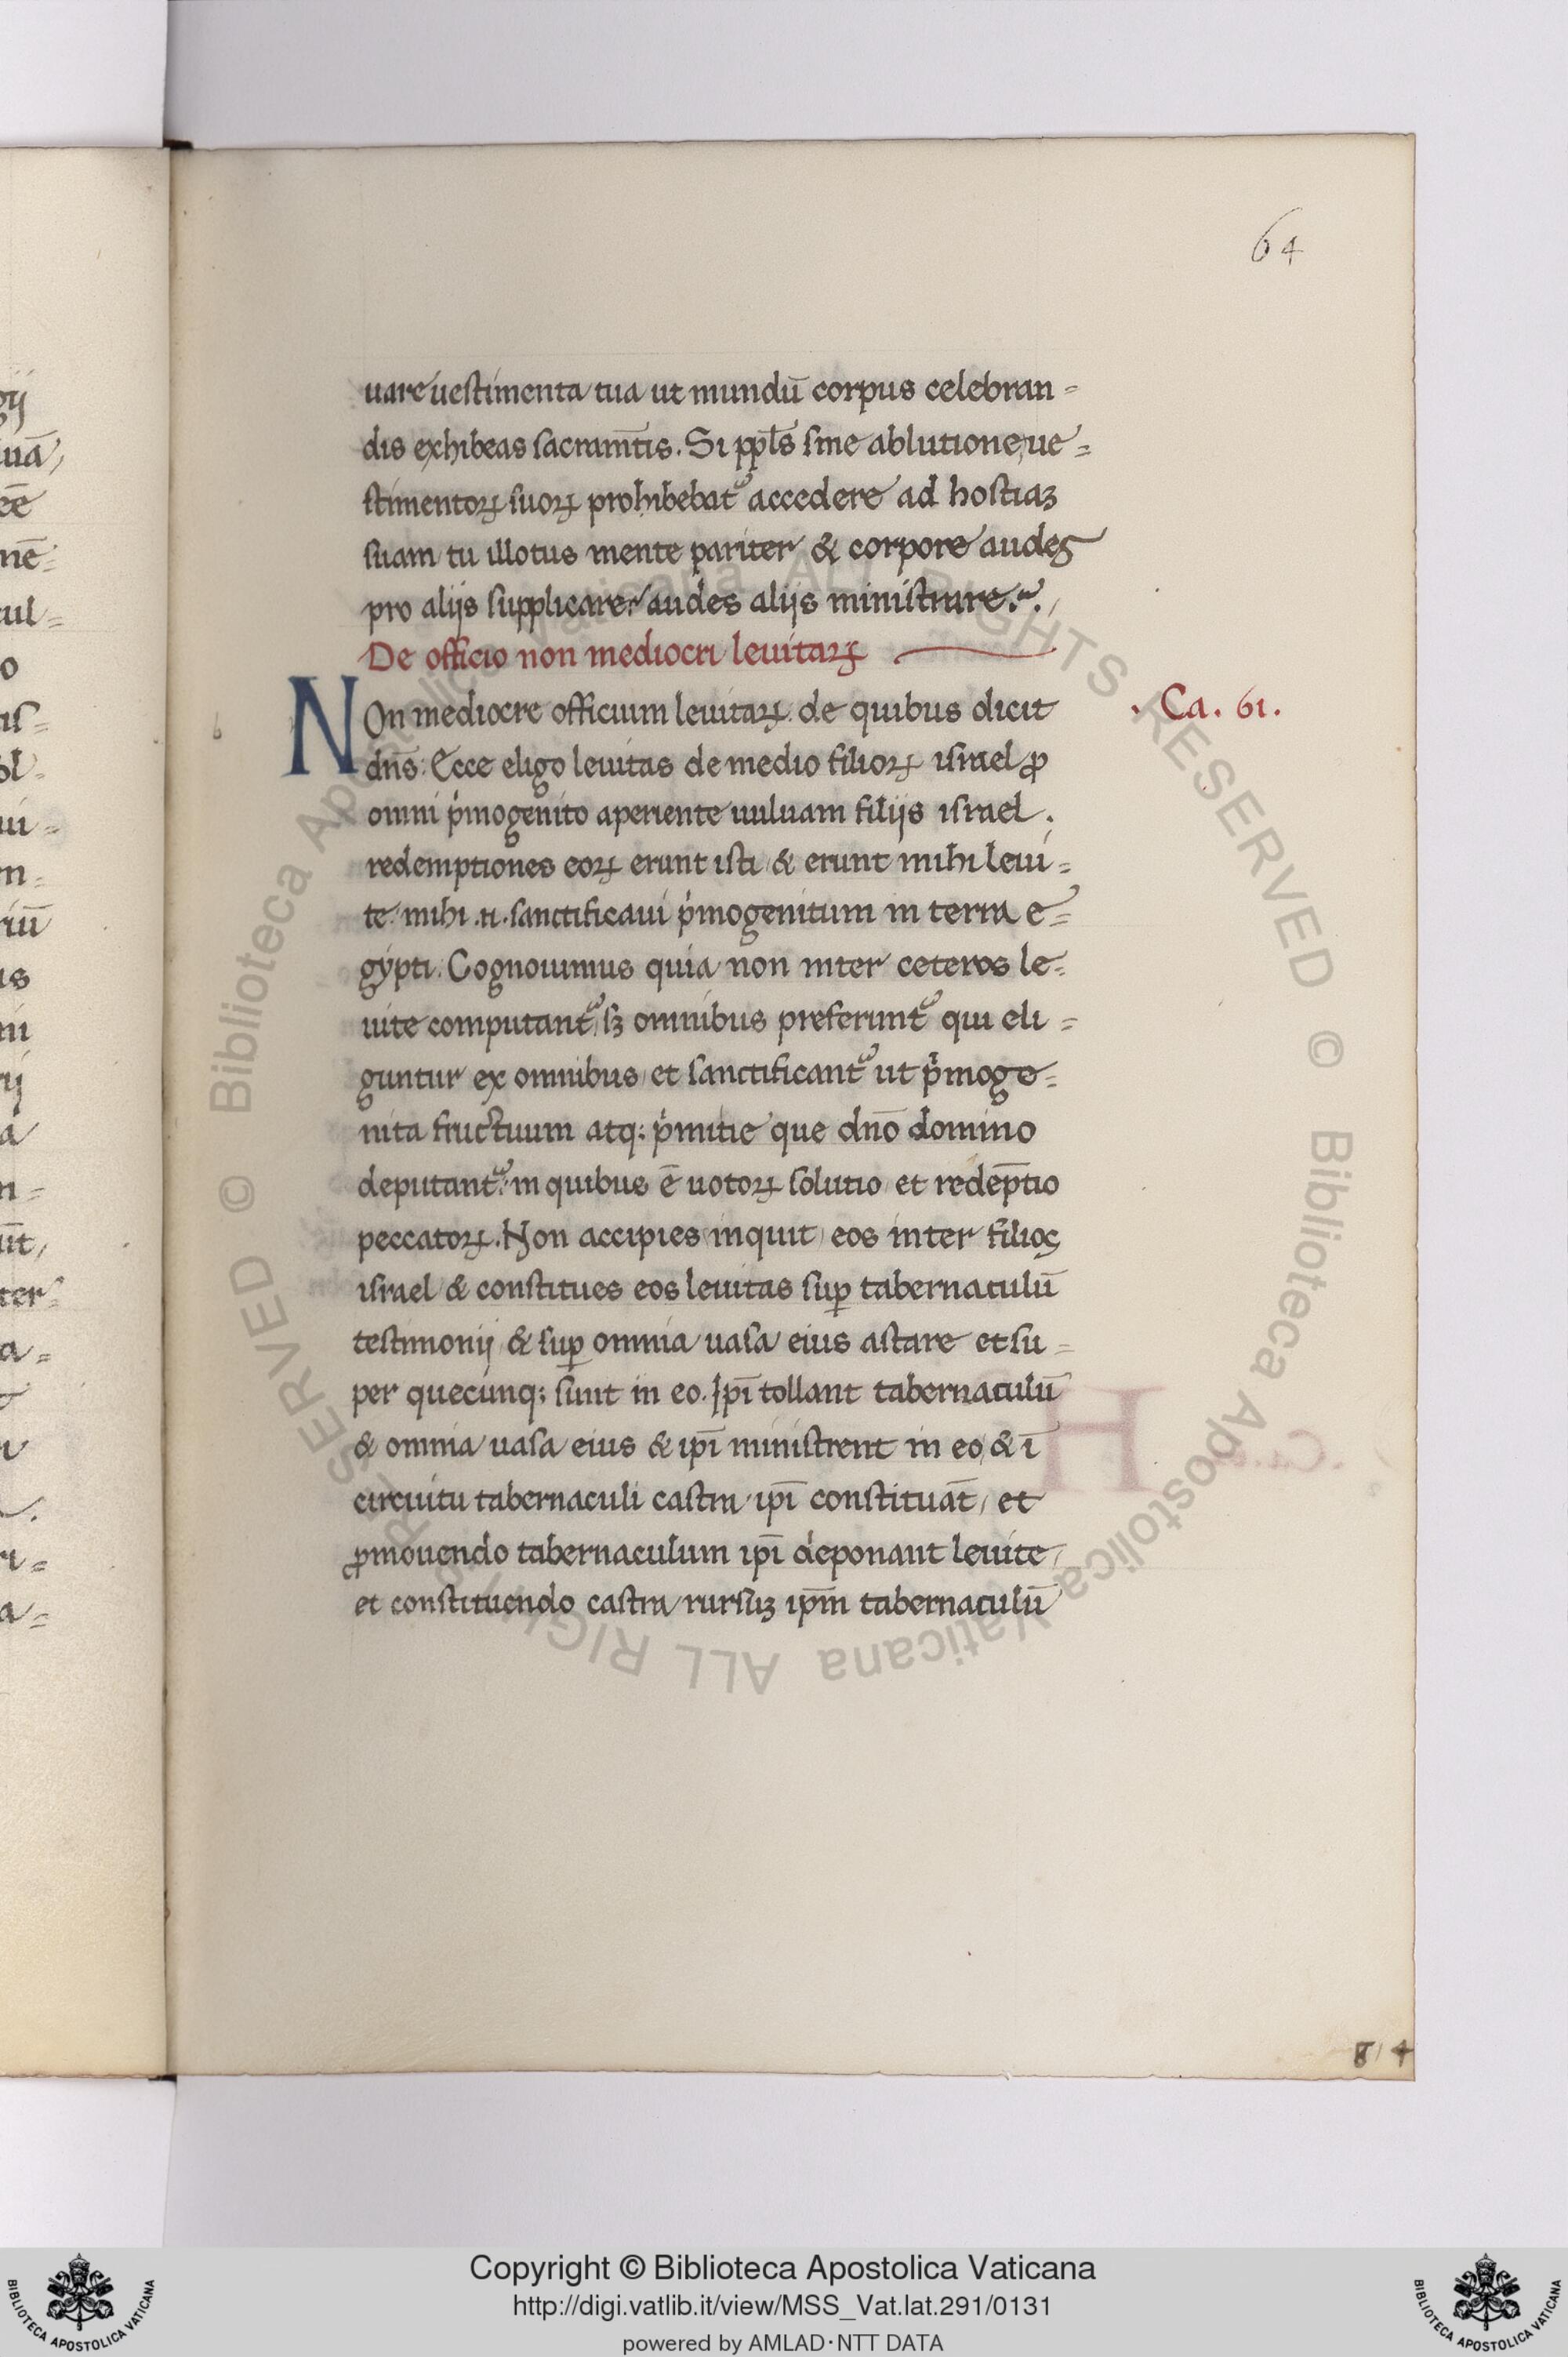 64
uare uestimenta tua ut mundū corpus celebran=
dis exhibeas sacram̄tis. Si ppl̄s sine ablutione, ue=
stimentoꝝ suoꝝ prohibebat᷑ accedere ad hostiaꝫ
suam tu illotus mente pariter & corpore audes
pro alijs supplicare? audes alijs ministrare?
De officio non mediocri leuitaꝝ
NOn mediocre officium leuitaꝝ. de quibus dicit
. Ca. 61.
dn̄s: Ecce eligo leuitas de medio filioꝝ israel ꝓ
omni p̍mogenito aperiente uuluam filijs israel.
redemptiones eoꝝ erunt isti & erunt mihi leui=
te. mihi .n. sanctificaui p̍mogenitum in terra e=
gypti. Cognouimus quia non inter ceteros le=
uite computant᷑, sꝫ omnibus preferunt᷑ qui eli=
guntur ex omnibus et sanctificant᷑ ut p̍moge=
nita fructuum atq; p̍mitie que dn̄o domino
deputant᷑: in quibus ē uotoꝝ solutio et redep̄tio
peccatoꝝ. Non accipies inquit eos inter filios
israel & constitues eos leuitas suꝑ tabernaculū
testimonij & suꝑ omnia uasa eius astare et su=
per quecunq; sunt in eo. Ipī tollant tabernaculū
& omnia uasa eius & ipī ministrent in eo, & ī
circuitu tabernaculi castra ipī constituāt, et
ꝓmouendo tabernaculum ipī deponant leuite,
et constituendo castra rursuꝫ ip̄m tabernaculū
Copyright © Biblioteca Apostolica Vaticana
http://digi.vatlib.it/view/MSS_Vat.lat.291/0131
powered by AMLAD·NTT DATA
BIBLIOTECA APOSTOLICA VATICANA
BIBLIOTECA APOSTOLICA VATICANA
© Biblioteca Apostolica Vaticana ALL RIGHTS RESERVED © Biblioteca Apostolica Vaticana ALL RIGHTS RESERVED